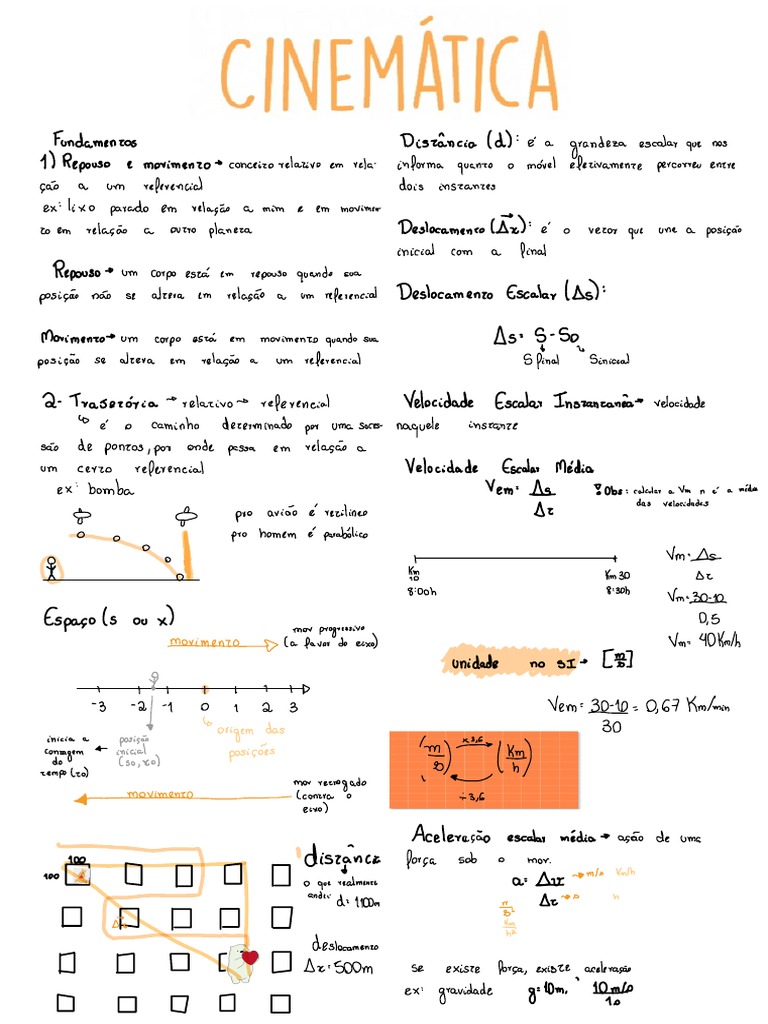 CINEMÁTICA
Fundamentos
1) Repouso e movimento → conceito relativo em rela-
ção a um referencial
ex: lixo parado em relação a mim e em movimen-
to em relação a outro planeta
Repouso → um corpo está em repouso quando sua
posição não se altera em relação a um referencial
Movimento → um corpo está em movimento quando sua
posição se altera em relação a um referencial
2- Trajetória → relativo → referencial
↳ é o caminho determinado por uma suces-
são de pontos, por onde passa em relação a
um certo referencial
ex: bomba
pro avião é retilíneo
pro homem é parabólico
Espaço (s ou x)
mov progressivo
(a favor do eixo)
movimento
-3 -2 -1 0 1 2 3
↳ origem das
posições
inicia a
contagem
do
tempo (to)
← posição
inicial
(so, xo)
movimento
mov retrogado
(contra o
eixo)
100
100
distância
o que realmente
andei
d: 1100m
deslocamento
Δx: 500m
Distância (d): é a grandeza escalar que nos
informa quanto o móvel efetivamente percorreu entre
dois instantes
Deslocamento (Δx): é o vetor que une a posição
inicial com a final
Deslocamento Escalar (Δs):
Δs = S - So
S final S inicial
Velocidade Escalar Instantanêa → velocidade
naquele instante
Velocidade Escalar Média
Vem = Δs
Δt
Obs: calcular a Vm n é a média
das velocidades
Km
10
8:00h
Km 30
8:30h
Vm = Δs
Δt
Vm = 30-10
0,5
Vm = 40 Km/h
unidade no SI → [m/s]
Vem = 30-10 = 0,67 Km/min
30
(m/s) x3,6 (Km/h)
÷3,6
Aceleração escalar média → ação de uma
força sob o mov.
a = Δv → m/s Km/h
Δt → s h
m
s²
Km
h²
se existe força, existe aceleração
ex: gravidade g = 10m, 10m/s
1s